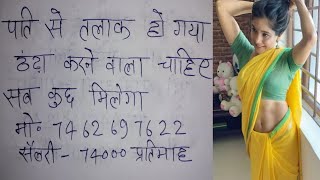 पति से तलाक हो गया
ठंडा करने वाला चाहिए
सब कुछ मिलेगा
मो॰ 7462697622
सैलरी- 74000 प्रतिमाह